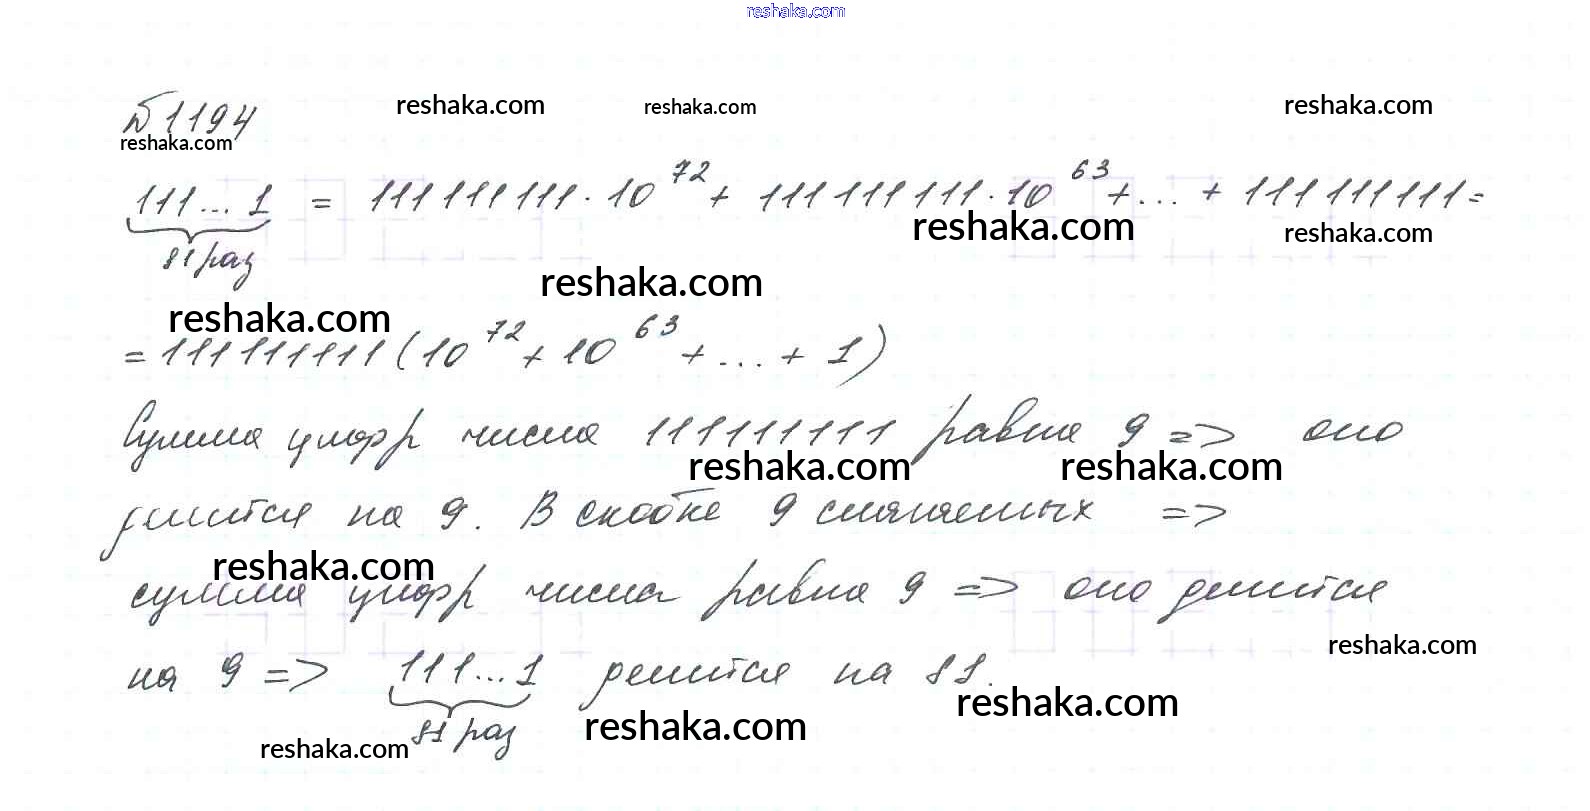 reshaka.com
№1194 reshaka.com reshaka.com reshaka.com
reshaka.com
111...1 = 111 111 111 · 10^72 + 111 111 111 · 10^63 + ... + 111 111 111 =
81 раз reshaka.com reshaka.com
reshaka.com
reshaka.com
= 111 111 111 (10^72 + 10^63 + ... + 1)
Сумма цифр числа 111111111 равна 9 => оно
reshaka.com reshaka.com
делится на 9. В скобке 9 слагаемых =>
reshaka.com
сумма цифр числа равна 9 => оно делится
reshaka.com
на 9 => 111...1 делится на 81.
reshaka.com
81 раз reshaka.com
reshaka.com